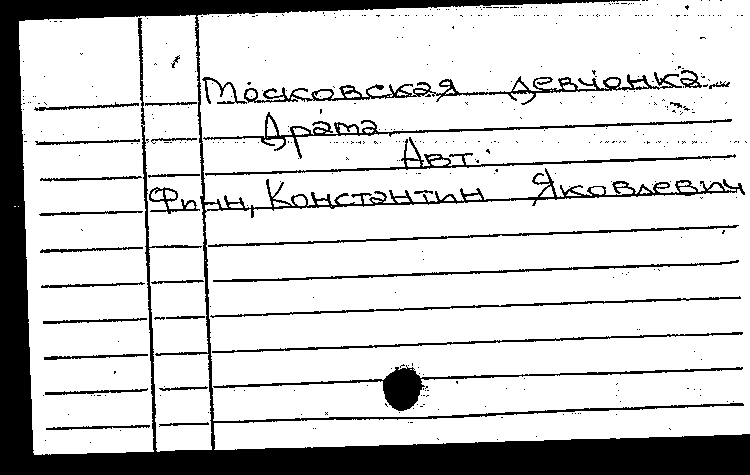 Московская девчонка.
Драма.
Авт.:
Финн, Константин Яковлевич